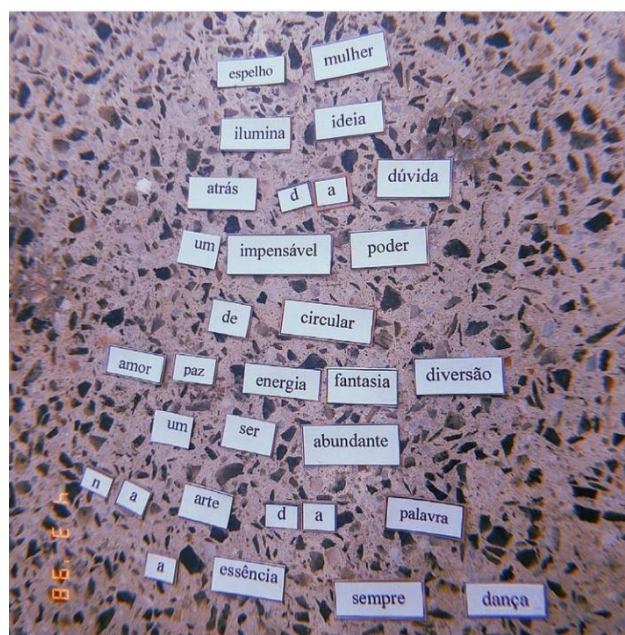 espelho mulher
ilumina ideia
atrás d a dúvida
um impensável poder
de circular
amor paz energia fantasia diversão
um ser abundante
n a arte d a palavra
a essência sempre dança
4 3 '98